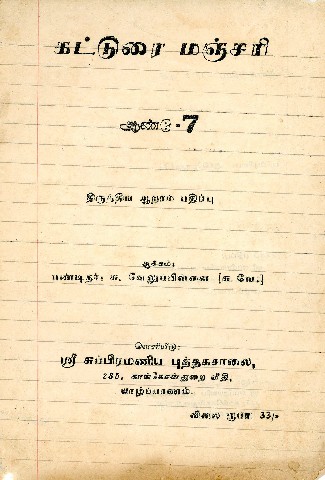 கட்டுரை மஞ்சரி
ஆண்டு - 7
திருந்திய ஆறாம் பதிப்பு
ஆக்கம்:
பண்டிதர்: சு. வேலுப்பிள்ளை [சு. வே.]
வெளியீடு:
ஸ்ரீ சுப்பிரமணிய புத்தகசாலை,
235, காங்கேசன்துறை வீதி,
யாழ்ப்பாணம்.
விலை ரூபா 33/-